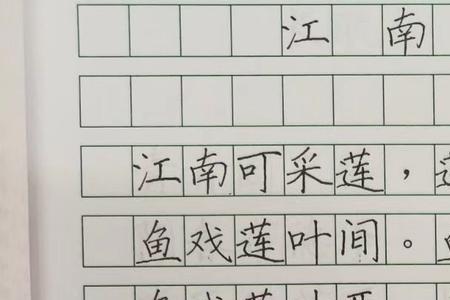 江南
江南可采莲，
鱼戏莲叶间。